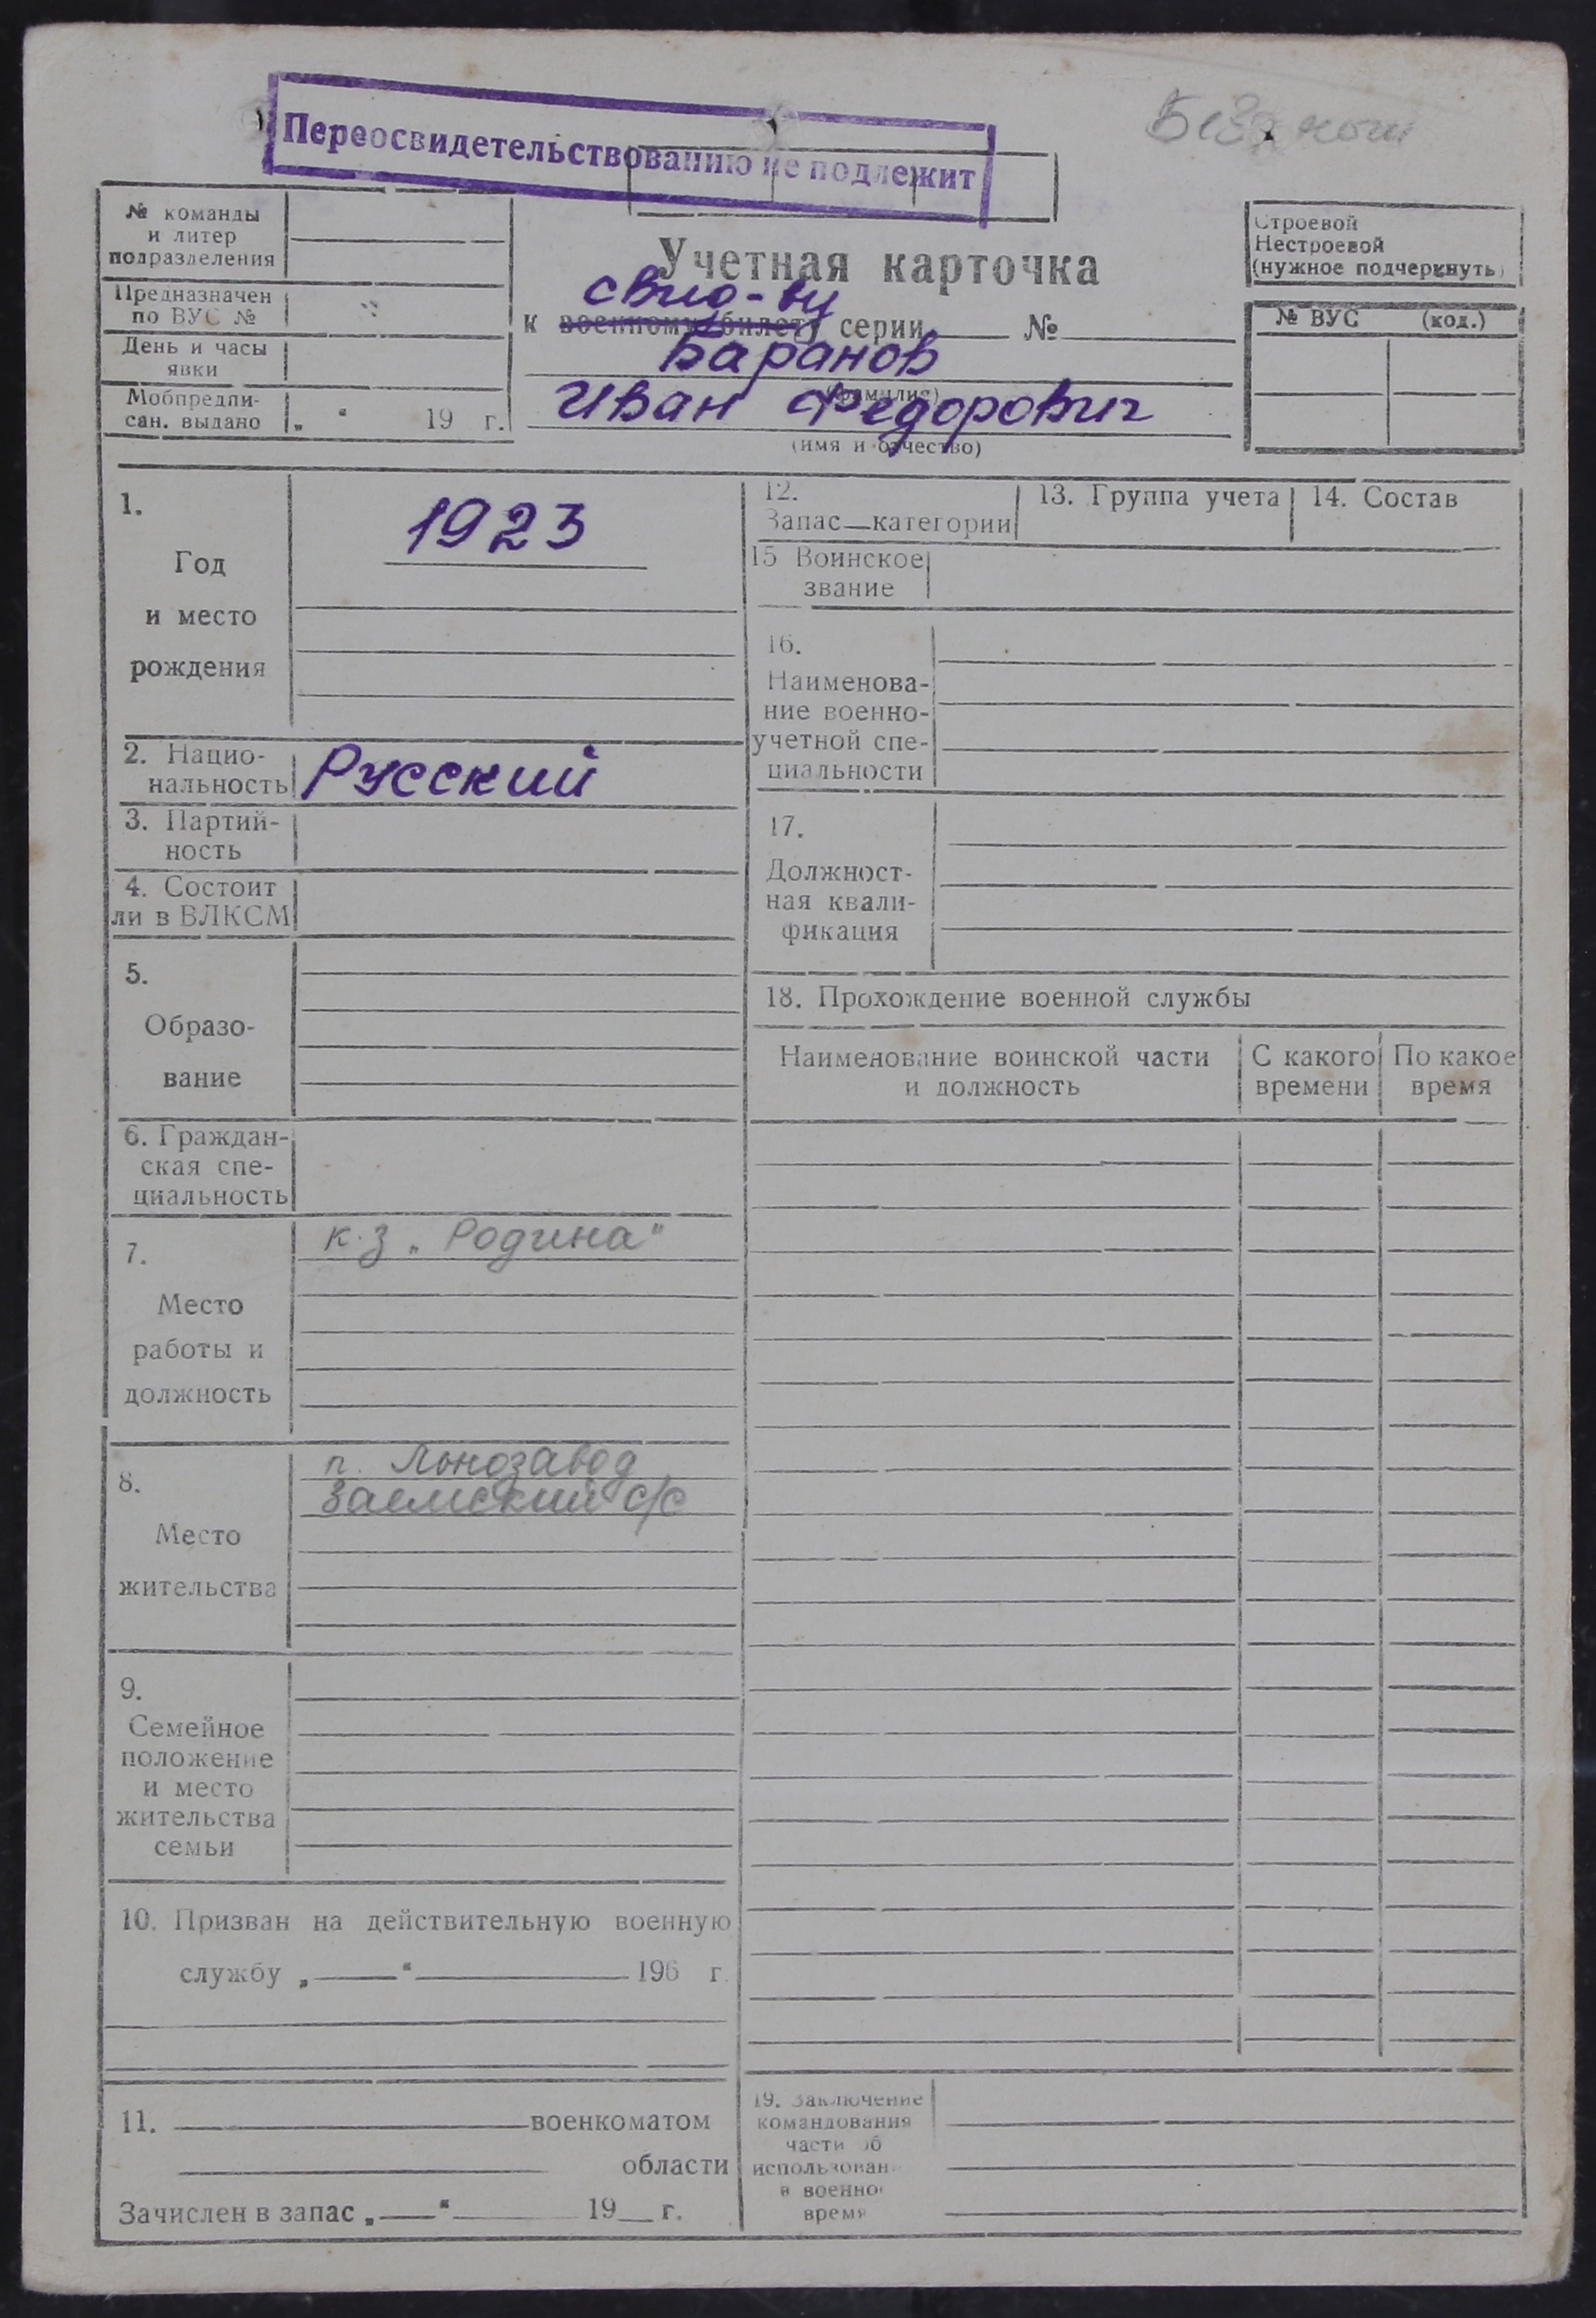 Переосвидетельствованию не подлежит
Без ног
№ команды
и литер
подразделения
Предназначен
по ВУС №
День и часы
явки
Мобпредпи-
сан. выдано „ “ 19 г.
Учетная карточка
свид-ву
к военному билету серии №
Баранов
(фамилия)
Иван Федорович
(имя и отчество)
Строевой
Нестроевой
(нужное подчеркнуть)
№ ВУС (код.)
1.
Год
и место
рождения
1923
2. Нацио-
нальность Русский
3. Партий-
ность
4. Состоит
ли в ВЛКСМ
5.
Образо-
вание
6. Граждан-
ская спе-
циальность
7.
Место
работы и
должность
к-з „Родина“
8.
Место
жительства
п. Льнозавод
Заемский с/с
9.
Семейное
положение
и место
жительства
семьи
10. Призван на действительную военную
службу „ “ 196 г.
11. военкоматом
области
Зачислен в запас „ “ 19 г.
12.
Запас—категории
13. Группа учета
14. Состав
15 Воинское
звание
16.
Наименова-
ние военно-
учетной спе-
циальности
17.
Должност-
ная квали-
фикация
18. Прохождение военной службы
Наименование воинской части
и должность
С какого
времени
По какое
время
19. Заключение
командования
части об
использован
в военно
время